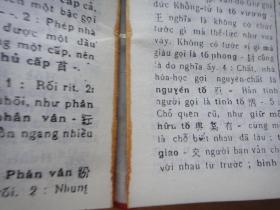 cấp cả,
một bậc gọi
. - 2 : Phép nhà
được một đầu
ng một cấp, nên
hủ cấp 首 -
. 1 : Rối rít. 2:
hối, như phân
phân vân - 紜
ồn ngang nhiều
Phân vân 紛
rối. 2 : Nhung
đức Không-tử là tố vương
王 nghĩa là không có chức
tước gì mà thế-lực như vua
vậy. Không có tước vị gì mà
giàu gọi là tố phong -
là do nghĩa ấy. 4 : Chất, nhà
hóa-học gọi nguyên-chất là
nguyên tố 元 - Bản tính
người gọi là tình tố 情 - 5 :
Chỗ quen cũ, như giữ mối
hữu tố 與 有 - cũng
là chỗ biết nhau đã lâu ; tố
giao - 交 người bạn vẫn chơi
với nhau từ trước ; bình